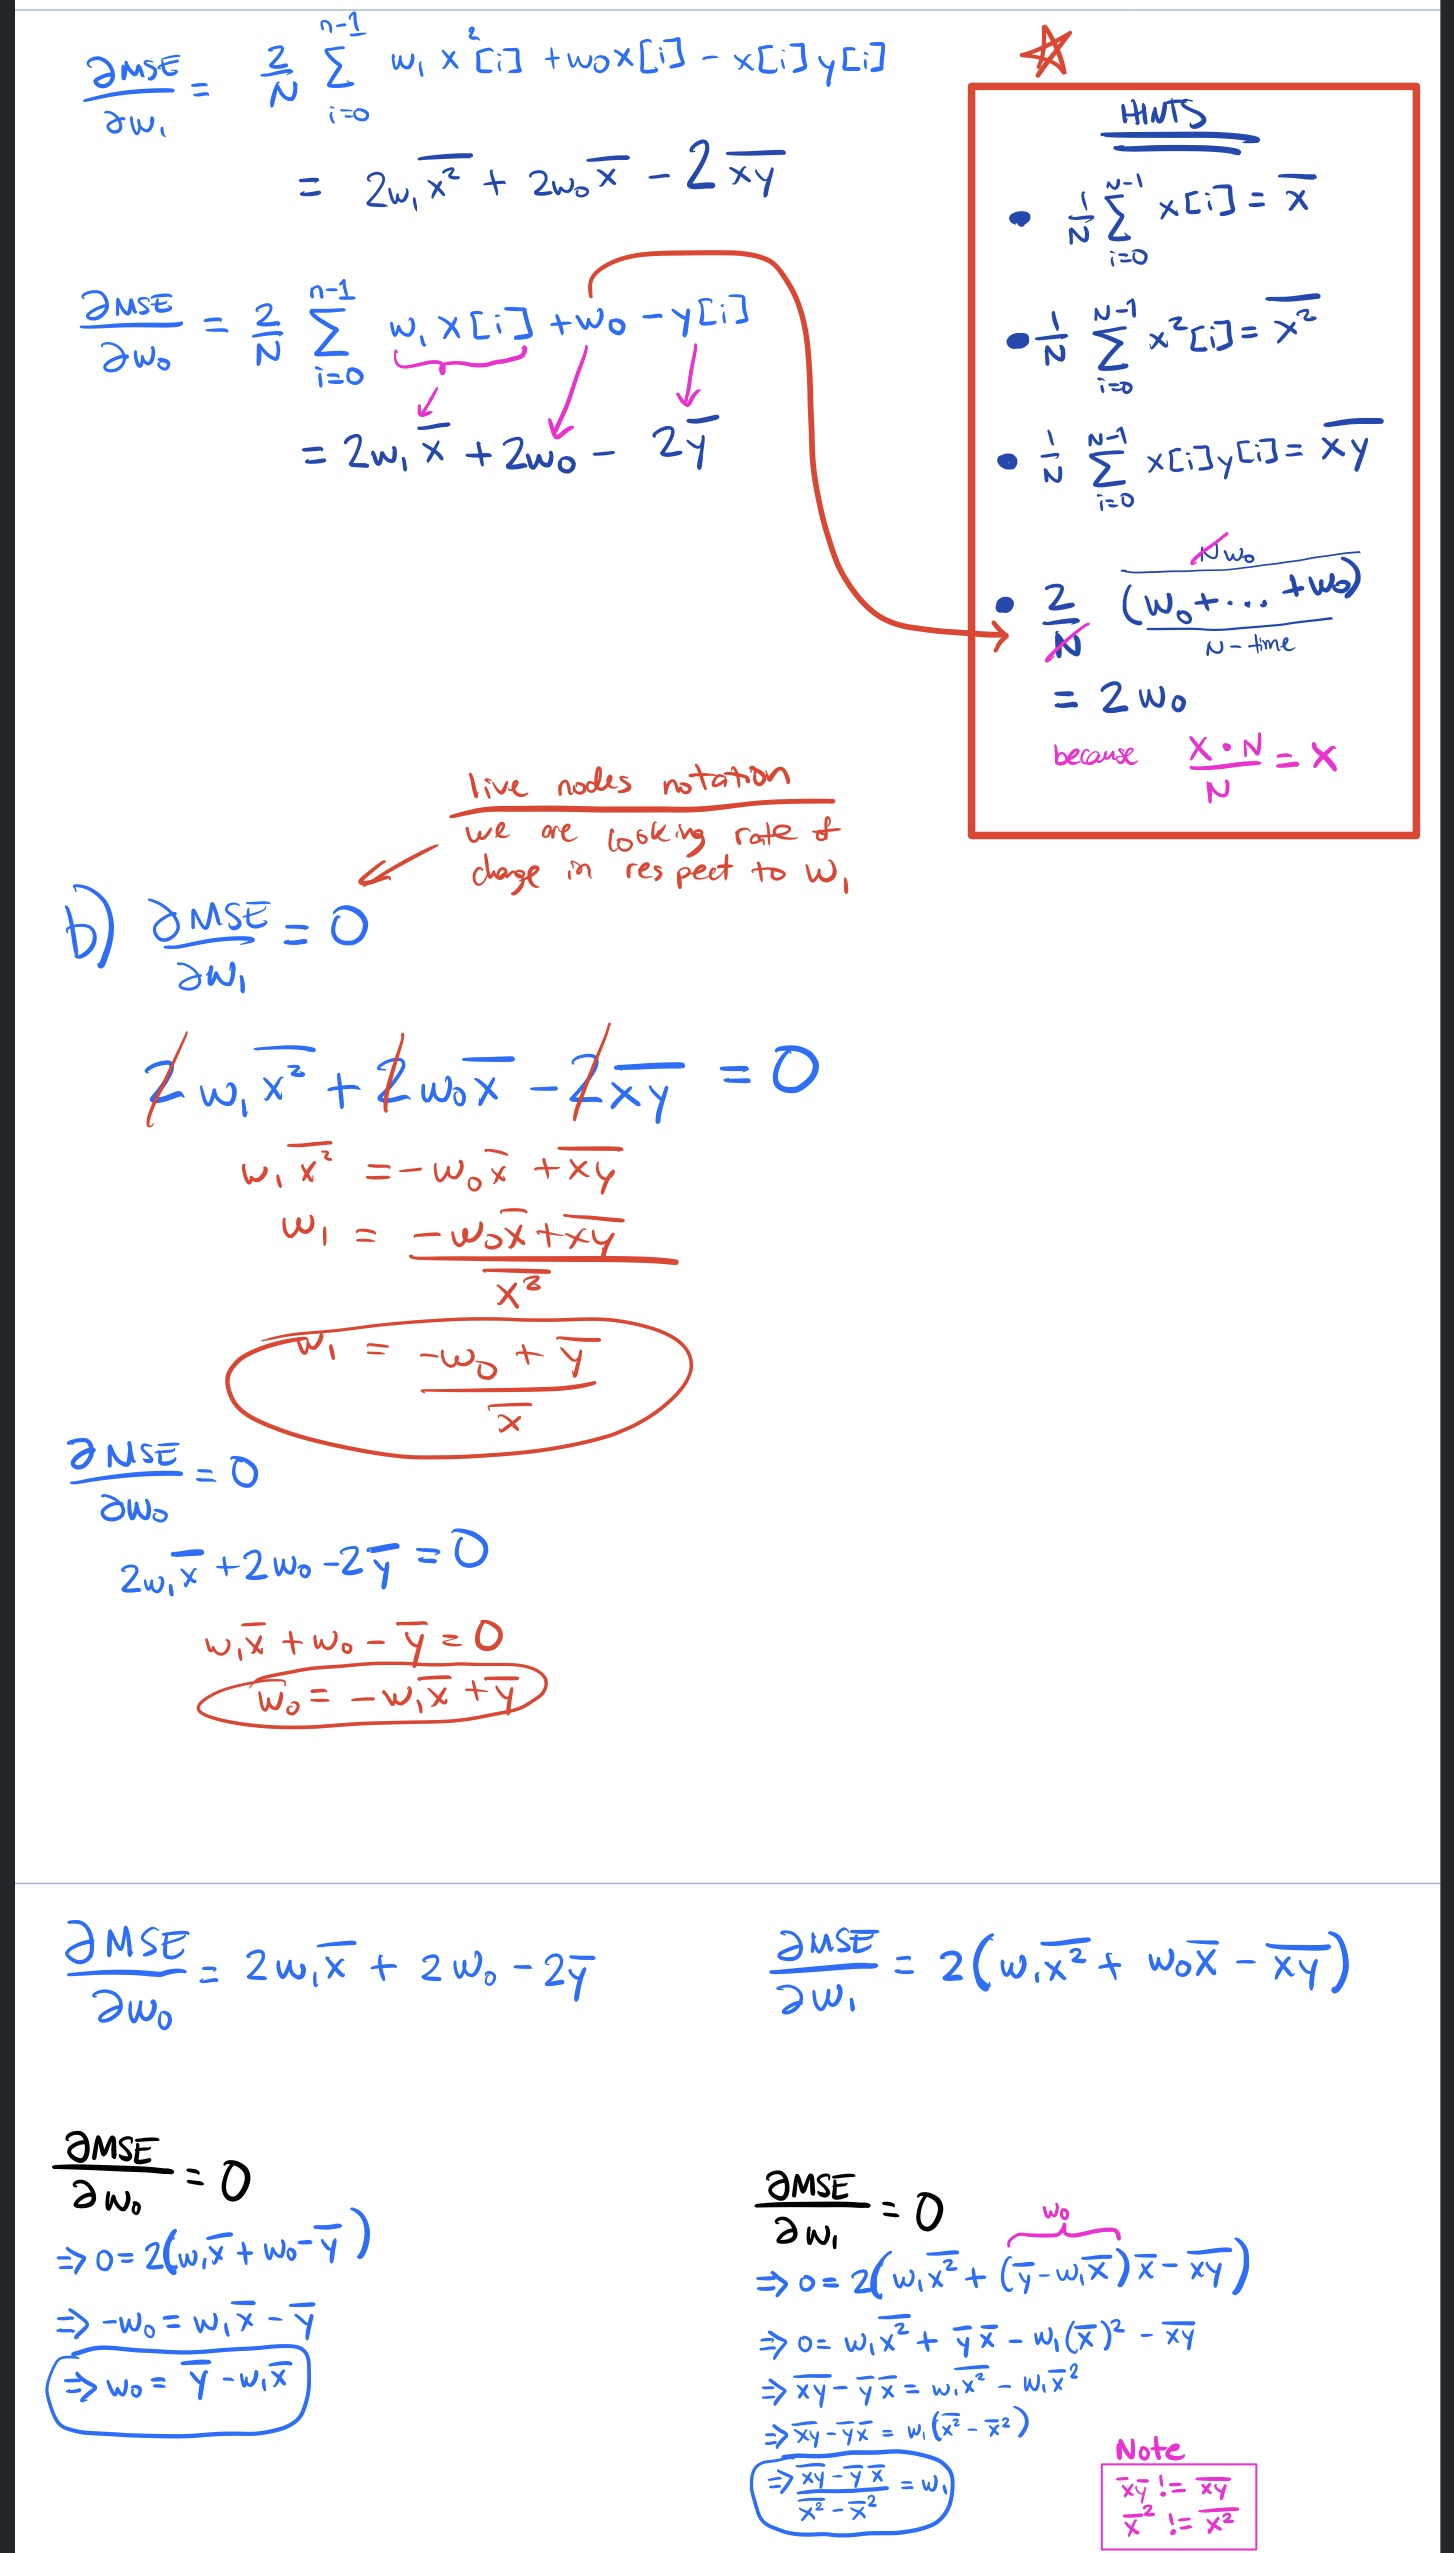 ∂MSE/∂w₁ = 2/N Σ_{i=0}^{n-1} w₁ x²[i] + w₀x[i] − x[i]y[i]
= 2w₁x̅²̅ + 2w₀x̅ − 2x̅y̅
∂MSE/∂w₀ = 2/N Σ_{i=0}^{n-1} w₁ x[i] + w₀ − y[i]
= 2w₁x̅ + 2w₀ − 2y̅
HINTS
• 1/N Σ_{i=0}^{N-1} x[i] = x̅
• 1/N Σ_{i=0}^{N-1} x²[i] = x̅²̅
• 1/N Σ_{i=0}^{N-1} x[i]y[i] = x̅y̅
Nw₀
• 2/N (w₀ + ... + w₀)
N-time
= 2w₀
because X·N/N = X
live nodes notation
we are looking rate of
change in respect to w₁
b) ∂MSE/∂w₁ = 0
2w₁x̅²̅ + 2w₀x̅ − 2x̅y̅ = 0
w₁x̅²̅ = −w₀x̅ + x̅y̅
w₁ = (−w₀x̅ + x̅y̅)/x̅²̅
w₁ = (−w₀ + y̅)/x̅
∂MSE/∂w₀ = 0
2w₁x̅ + 2w₀ − 2y̅ = 0
w₁x̅ + w₀ − y̅ = 0
w₀ = −w₁x̅ + y̅
∂MSE/∂w₀ = 2w₁x̅ + 2w₀ − 2y̅
∂MSE/∂w₀ = 0
⇒ 0 = 2(w₁x̅ + w₀ − y̅)
⇒ −w₀ = w₁x̅ − y̅
⇒ w₀ = y̅ − w₁x̅
∂MSE/∂w₁ = 2(w₁x̅²̅ + w₀x̅ − x̅y̅)
∂MSE/∂w₁ = 0
w₀
⇒ 0 = 2(w₁x̅²̅ + (y̅ − w₁x̅)x̅ − x̅y̅)
⇒ 0 = w₁x̅²̅ + y̅ x̅ − w₁(x̅)² − x̅y̅
⇒ x̅y̅ − y̅ x̅ = w₁x̅²̅ − w₁x̅²
⇒ x̅y̅ − y̅ x̅ = w₁(x̅²̅ − x̅²)
⇒ (x̅y̅ − y̅ x̅)/(x̅²̅ − x̅²) = w₁
Note
x̅ y̅ != x̅y̅
x̅² != x̅²̅